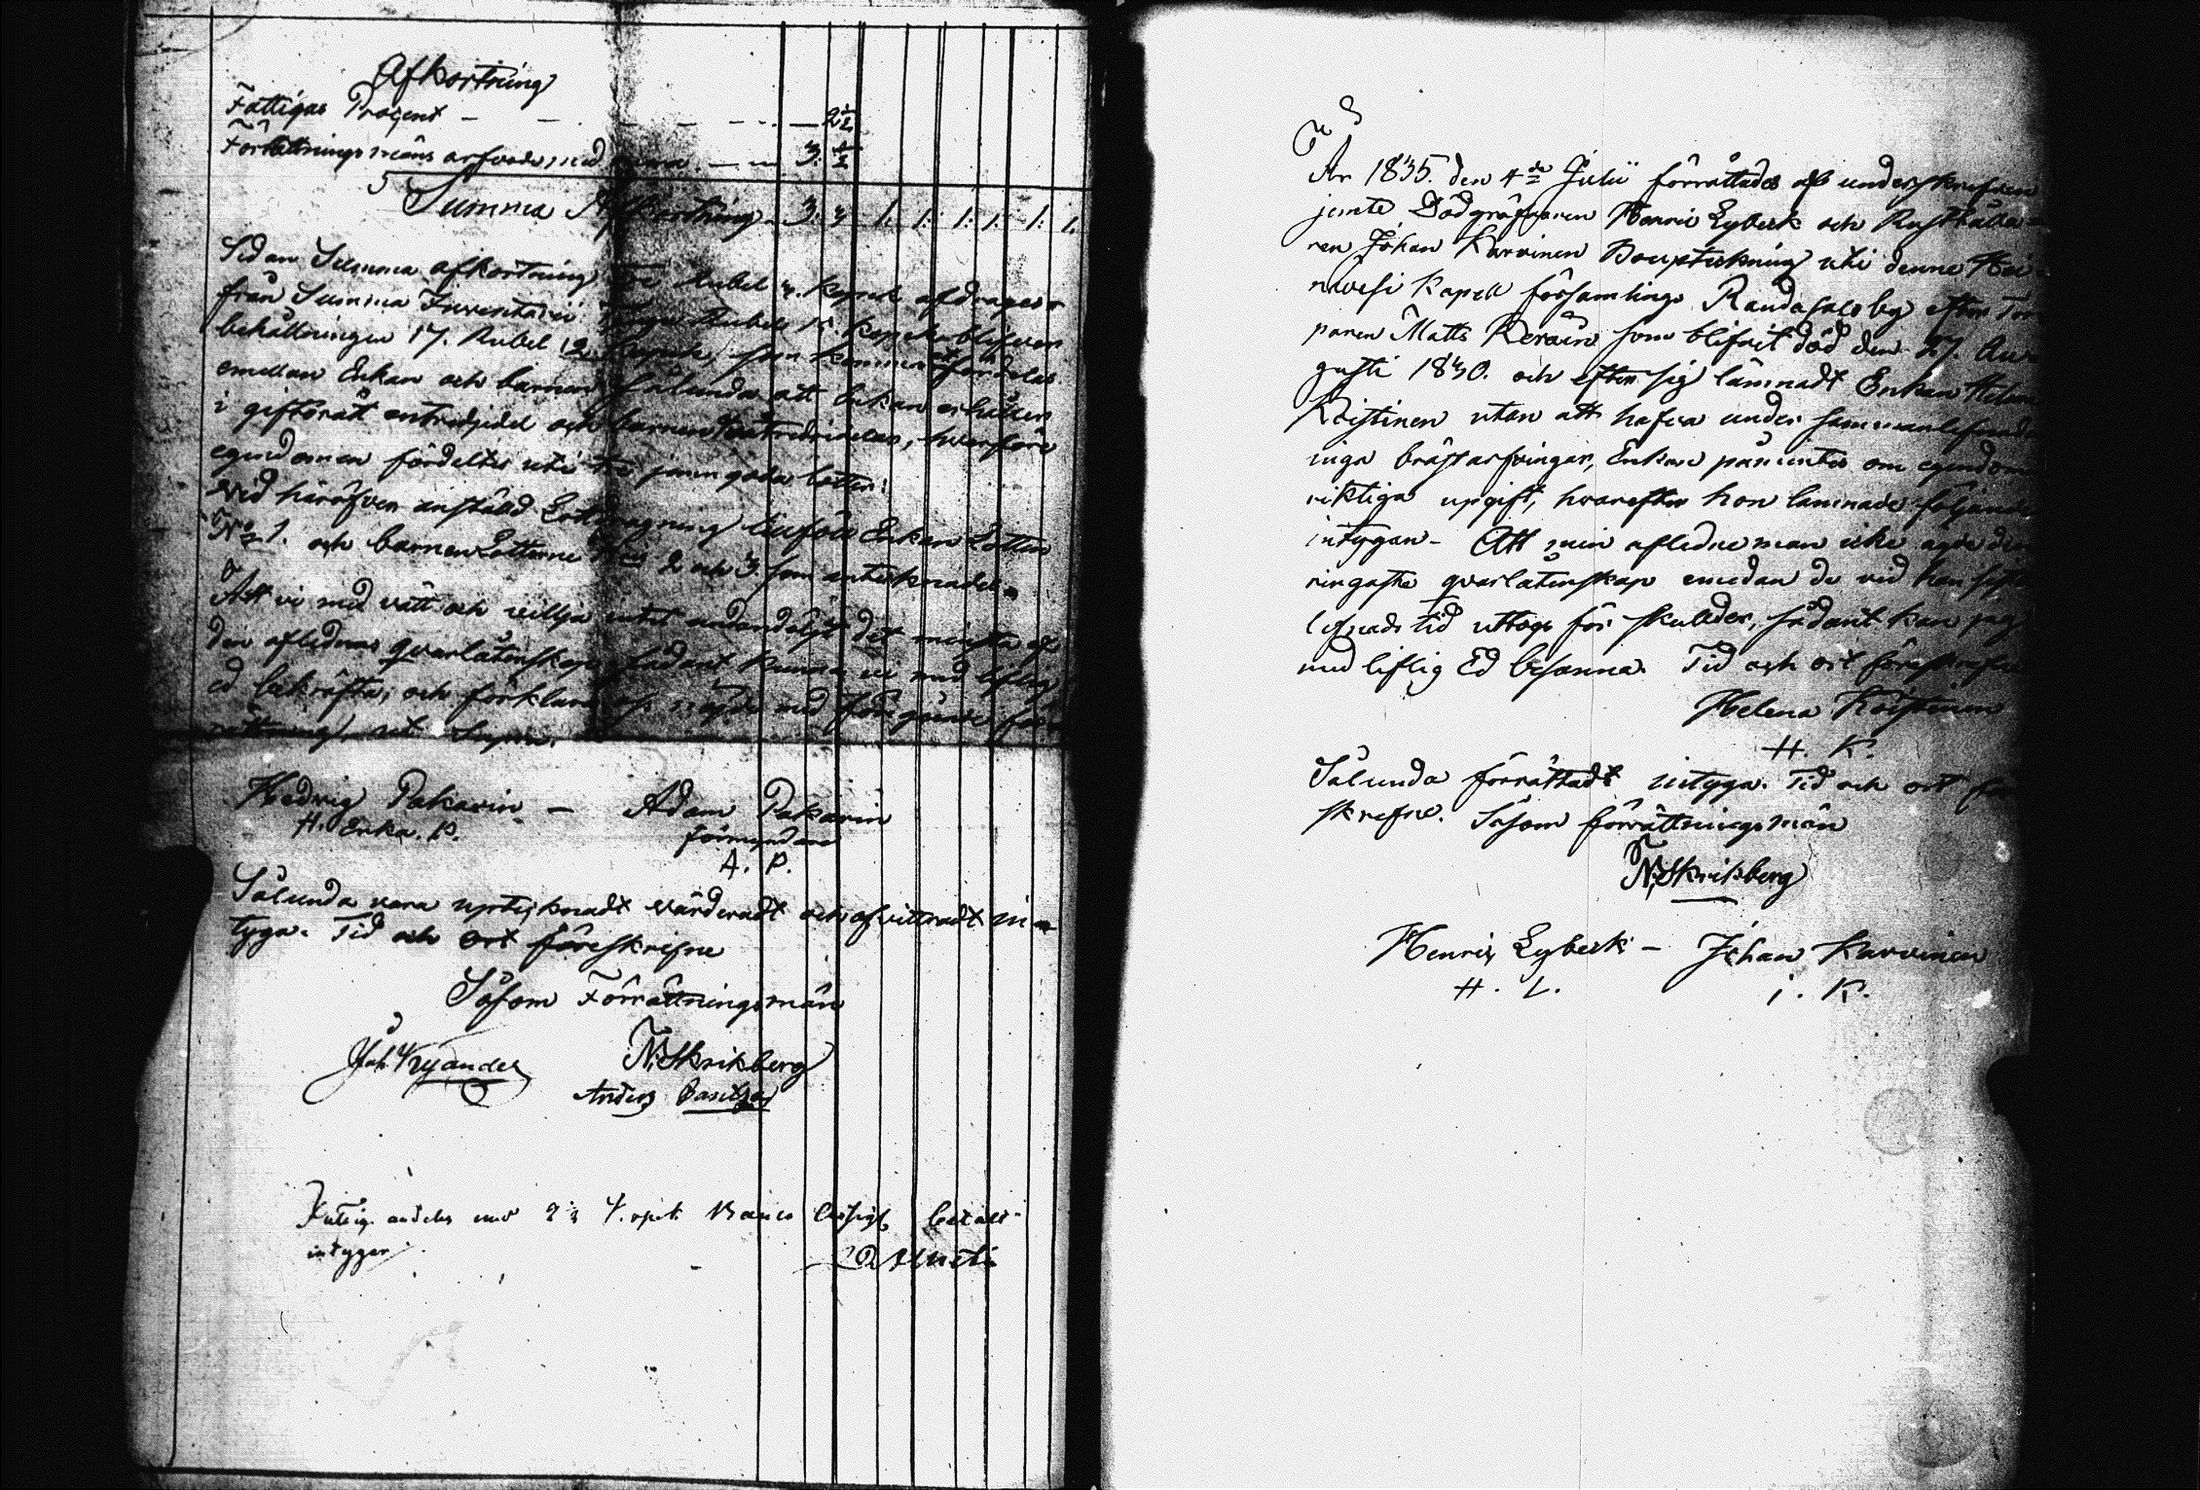 Afkortning
Fattigas Procent - - - - - 2½
Förrättnings mäns arfvode med - - 3. ½
Summa Afkortning 3. 3 1. 1. 1. 1. 1. 1.
Sedan Summa afkortning Tre Rubel 3. kopek afdrages
från Summa Inventarii Rubel 15. kopek blifver
behållningen 17. Rubel 12 kopek, som kommer at fördelas
emellan Enkan och barnen sålunda att Enkan erhåller
i giftorätt entredjedel och barnen tvåtredjedelar, hvarföre
egendomen fördeltes uti tre jemngoda lotter:
Vid häröfver anstäld Lottdragning tillföll Enkan Lotten
N:o 1. och barnen Lotterne N:is 2 och 3 som antecknades.
Att vi med vått och villja intet undandöljt det minsta af
den aflednas qvarlåtenskap sådant kunna vi med liflig
ed bekräfta; och förklara oss nöjde med föregående för-
rättning, ut Supra.
Hedvig Pakarin — Adam Pakarin
H. Enka. P. förmyndare
A. P.
Sålunda vara uptecknadt värderadt och afvittradt in-
tyga. Tid och ort föreskrifne
Såsom Förrättningsmän
Joh Kyander N. Skrikberg
Anders
Fattig andelen med 2 4. rpk. Banco Assign. betalt
intygar
År 1835. den 4de Julii förrättades af underskrefven
jemte Dödgräfvaren Henric Lyberk och Rusthålla-
ren Johan Karvinen Bouptekning uti denne Hei
navesi Kapell församlings Randasalo by efter Tor
paren Matts Keräin som blifvit död den 27. Au-
gusti 1830. och efter sig lämnadt Enkan Helena
Kristinen utan att hafva under sammanlefnaden
inga bröstarfvingar, Enkan påmintes om egendomens
riktiga upgift, hvarefter hon lämnade följande
intygan - Att min afledne man icke ägde den
ringaste qvarlåtenskap emedan de vid hans
lifnads tid uttogs för skullder, sådant kan jag
med liflig Ed besanna. Tid och ort föreskrefne
Helena Kristinen
H. K.
Sålunda förrättadt intyga. Tid och ort före
skrefne. Såsom förrättningsmän
N. Skrikberg
Henric Lyberk — Johan Karvinen
H. L. i. K.